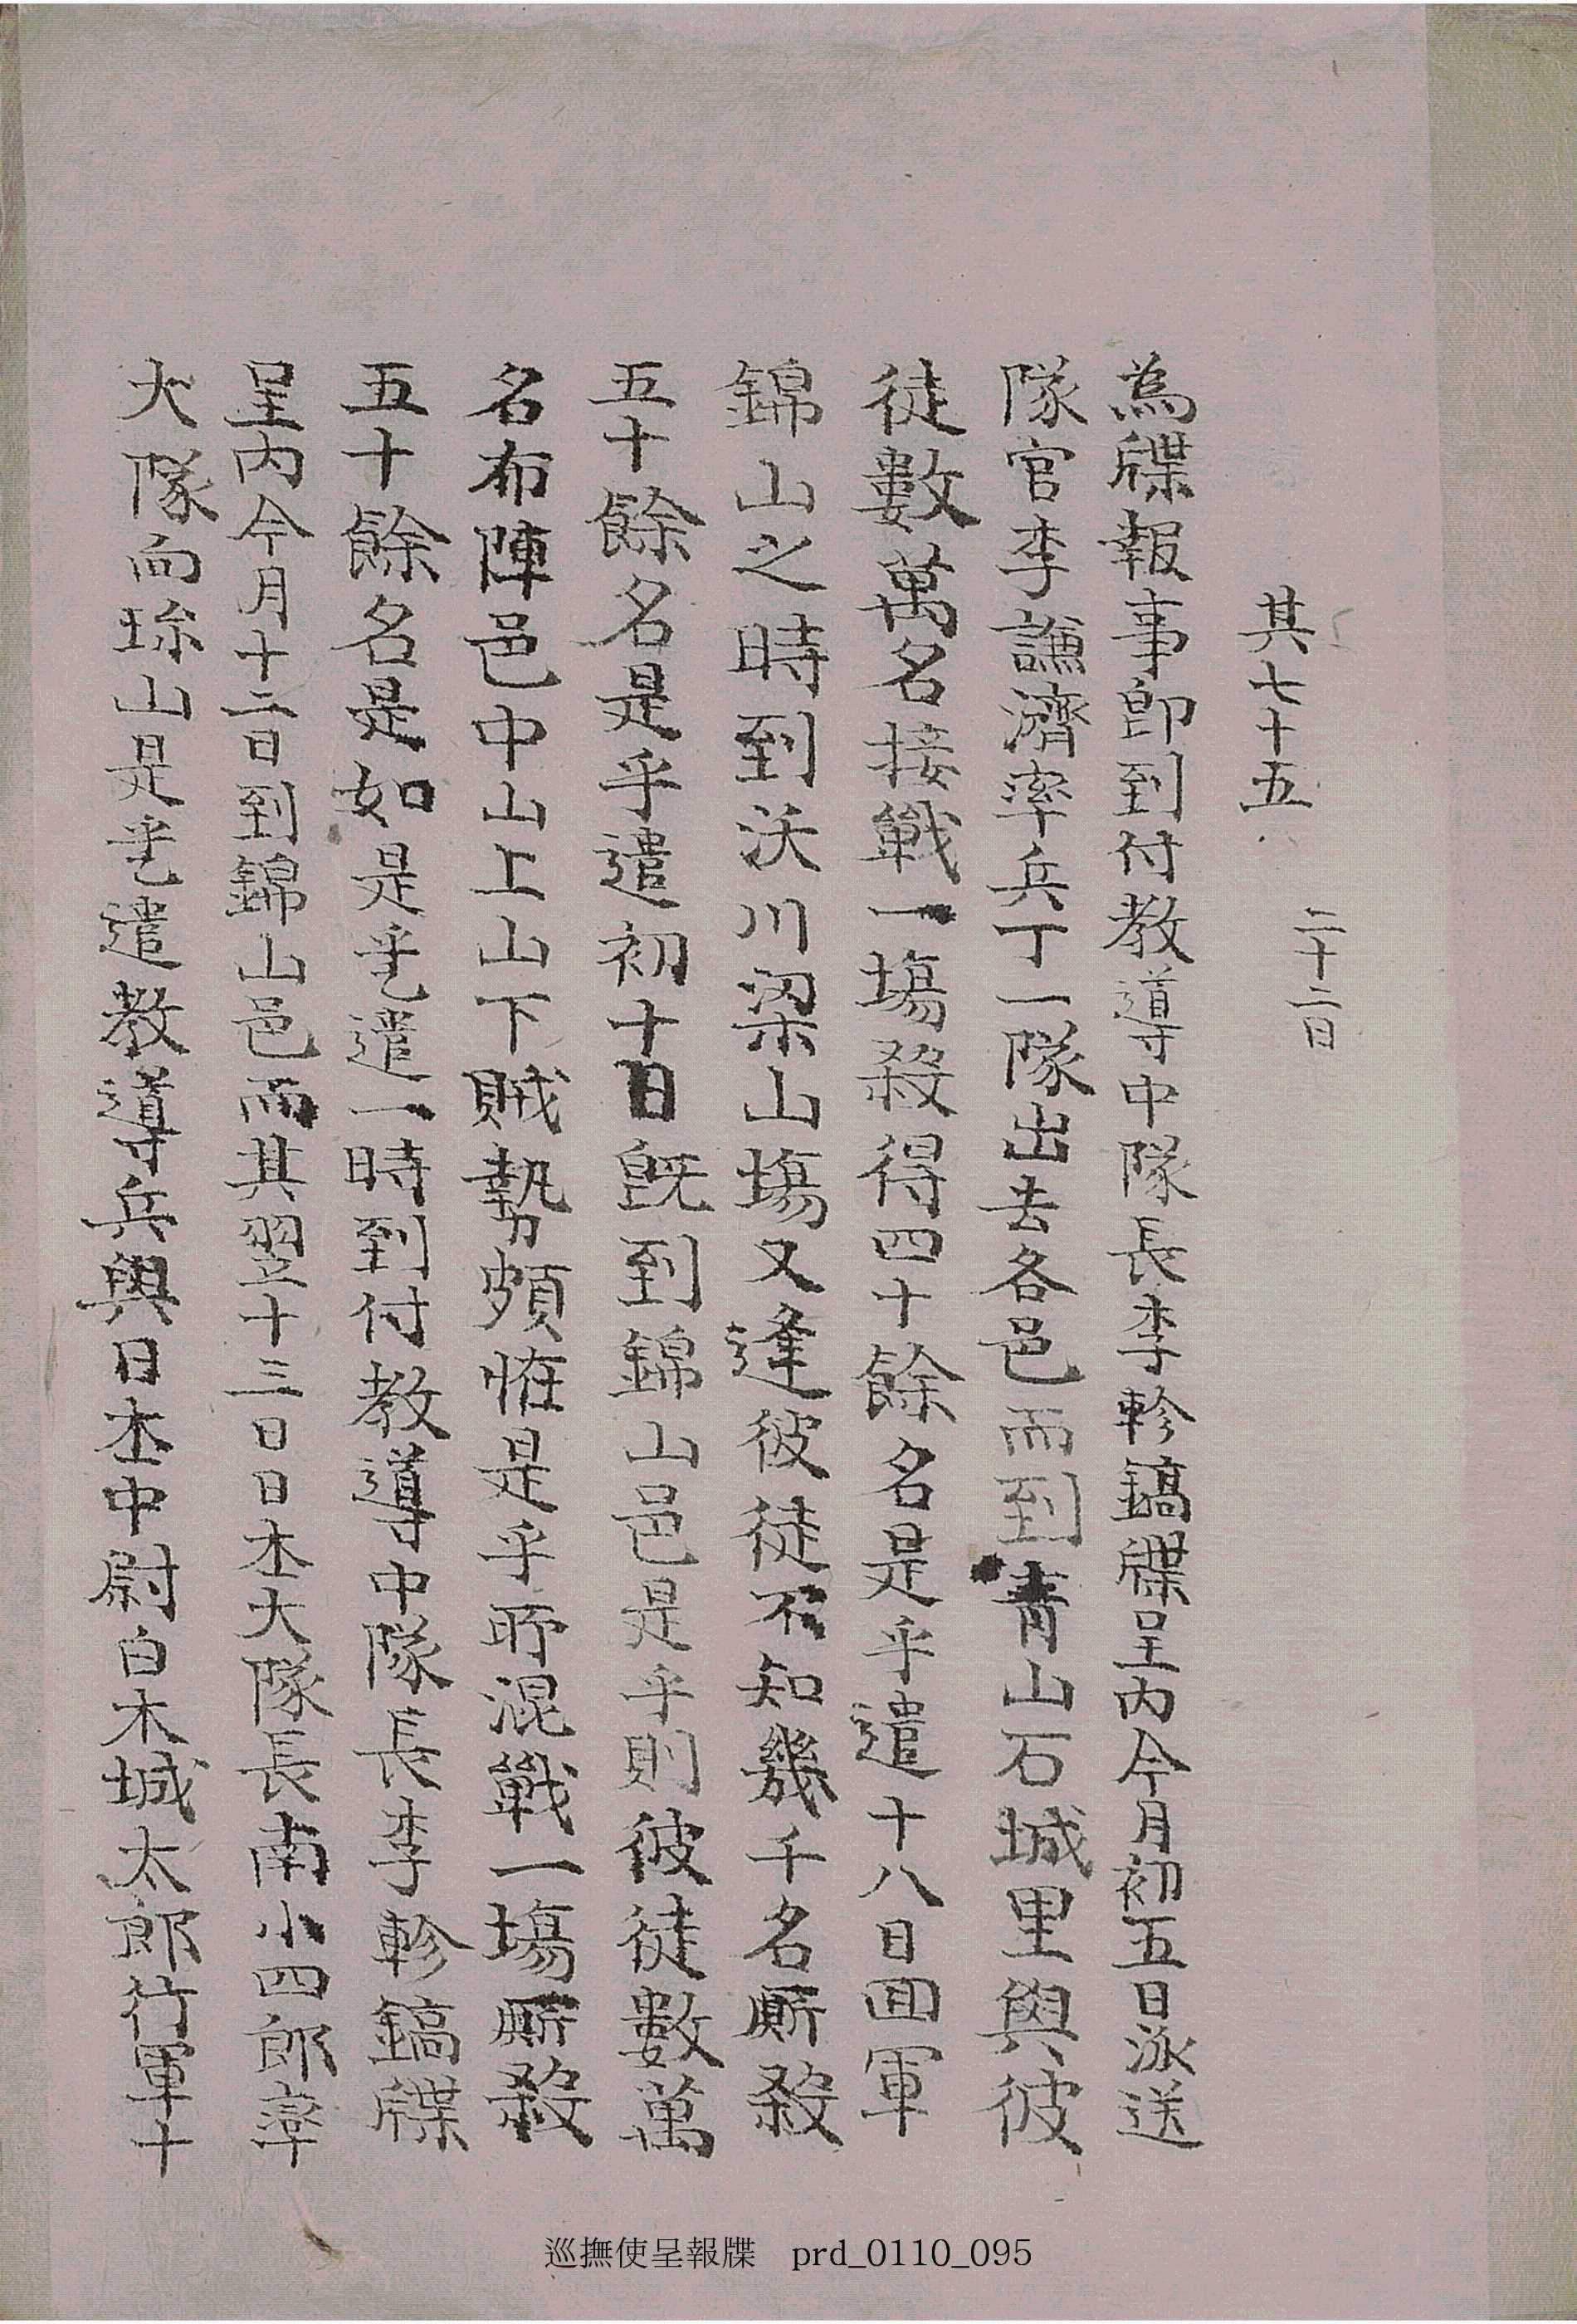 其七十五
二十二日
為牒報事卽到付教導中隊長李軫鎬牒呈內今月初五日派送
隊官李謙濟率兵丁一隊出去各邑而到靑山石城里與彼
徒數萬名接戰一塲殺得四十餘名是乎遣十八日回軍
錦山之時到沃川梁山塲又逢彼徒不知幾千名厮殺
五十餘名是乎遣初十日旣到錦山邑是乎則彼徒數萬
名布陣邑中山上山下賊勢頗恠是乎所混戰一塲厮殺
五十餘名是如是乎乙遣一時到付教導中隊長李軫鎬牒
呈內今月十二日到錦山邑而其翌十三日日本大隊長南小四郎率
大隊向珎山是乎乙遣教導兵與日本中尉白木城太郎行軍十
巡撫使呈報牒 prd_0110_095